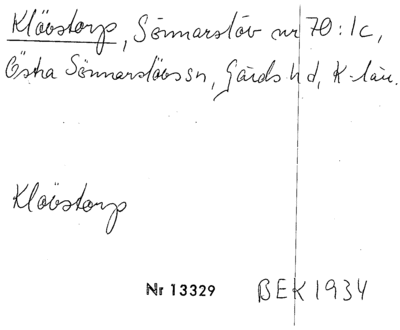 Klövstorp, Sönnarslöv nr 70:1c,
Östra Sönnarslövs sn, Gärds hd, K-län.
Klövstorp
Nr 13329 BEK 1934